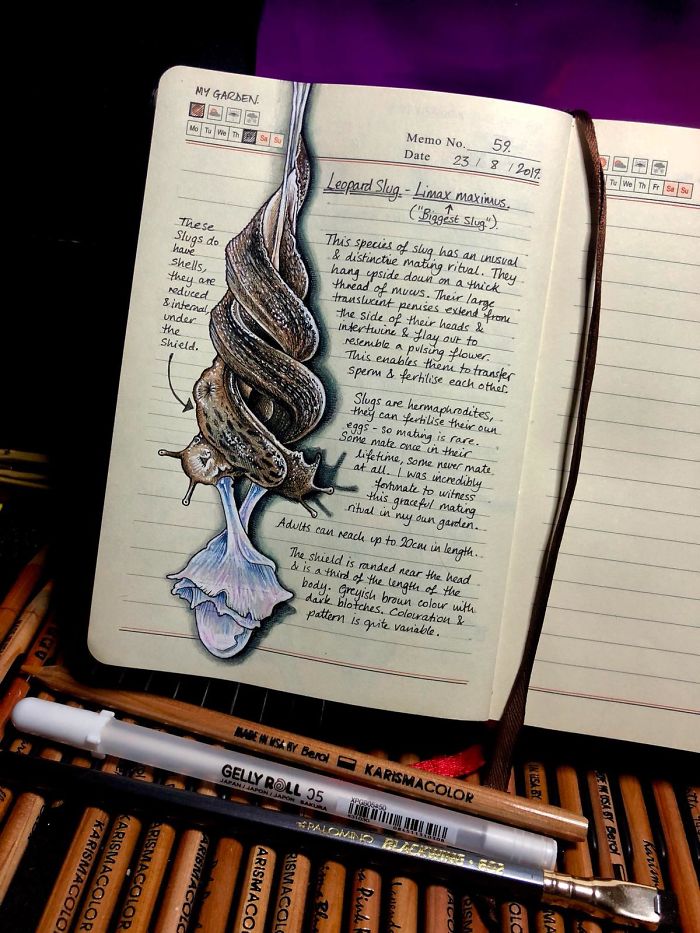 MY GARDEN.
Mo Tu We Th Sa Su
Memo No. 59.
Date 23 / 8 / 2019.
Leopard Slug - Limax maximus.
("Biggest Slug")
These
Slugs do
have
shells,
they are
reduced
& internal,
under
the
shield.
This species of slug has an unusual
& distinctive mating ritual. They
hang upside down on a thick
thread of mucus. Their large
translucent penises extend from
the side of their heads &
intertwine & flay out to
resemble a pulsing flower.
This enables them to transfer
sperm & fertilise each other.
Slugs are hermaphrodites,
they can fertilise their own
eggs - so mating is rare.
Some mate once in their
lifetime, some never mate
at all. I was incredibly
fortunate to witness
this graceful mating
ritual in my own garden.
Adults can reach up to 20cm in length.
The shield is randed near the head
& is a third of the length of the
body. Greyish brown colour with
dark blotches. Colouration &
pattern is quite variable.
Tu We Th Fr Sa Su
MADE IN USA BY Berol KARISMACOLOR
GELLY ROLL 05
JAPAN / JAPON / JAPÓN SAKURA
XPGB05#50
PALOMINO BLACKWING 602
KARISMACOLOR
KARISMACOLOR
KARISMACOLOR
KARISMACOLOR